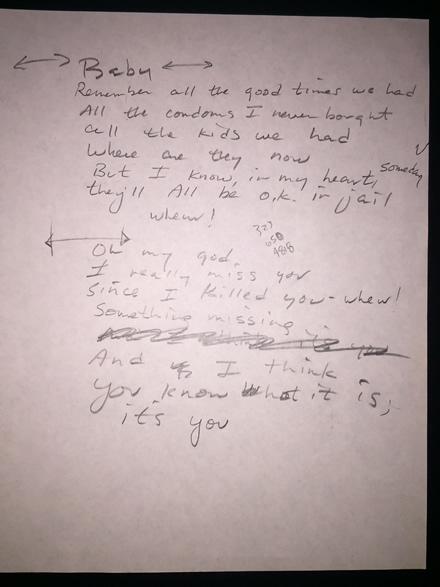 Baby
Remember all the good times we had
All the condoms I never bought
all the kids we had
Where are they now
But I know, in my heart, someday
they'll All be o.k. in jail
whew!
323
650
4818
Oh my god,
I really miss you
Since I killed you - whew!
Something missing
And I think
You know what it is;
its you